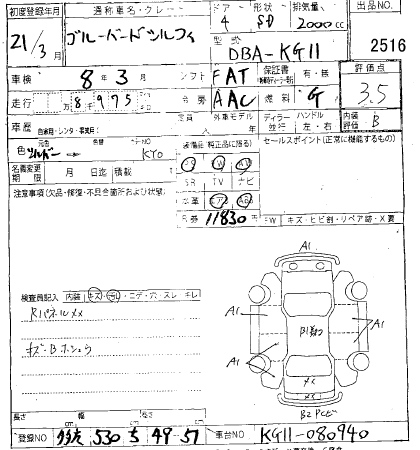 初度登録年月 通称車名・グレード ドア 形状 排気量 出品NO
21/3月 ブルーバードシルフィ 4 SD 2000cc
型式 DBA-KG11 2516
車検 8年3月 シフト FAT 保証書 有・無 評価点
走行 8千975 冷房 AAC 燃料 G 3.5
車歴 自家用・レンタ・事業用( ) 定員 人 外車モデル 年 ディーラー 並行 ハンドル 左・右 内装評価 B
色 シルバー 色替 カラーNO KY0 装備品(純正品に限る) セールスポイント(正常に機能するもの)
PS PW AW
名義変更期限 月 日迄 積載 SR TV ナビ
注意事項(欠品・修復・不具合箇所および状態) 本革 エア AB
リ券 11830円 FW キズ・ヒビ割・リペア跡・X要
A1
A1 A1
B1
A1
検査員記入 内装 キズ・汚レ・コゲ・穴・スレ・キレ
Rパネルメメ
キズ・Bホシュウ
メメ
A1
B2
長さ 幅 高さ
登録NO 多摩 530 ち 49-57 車台NO KG11-080940